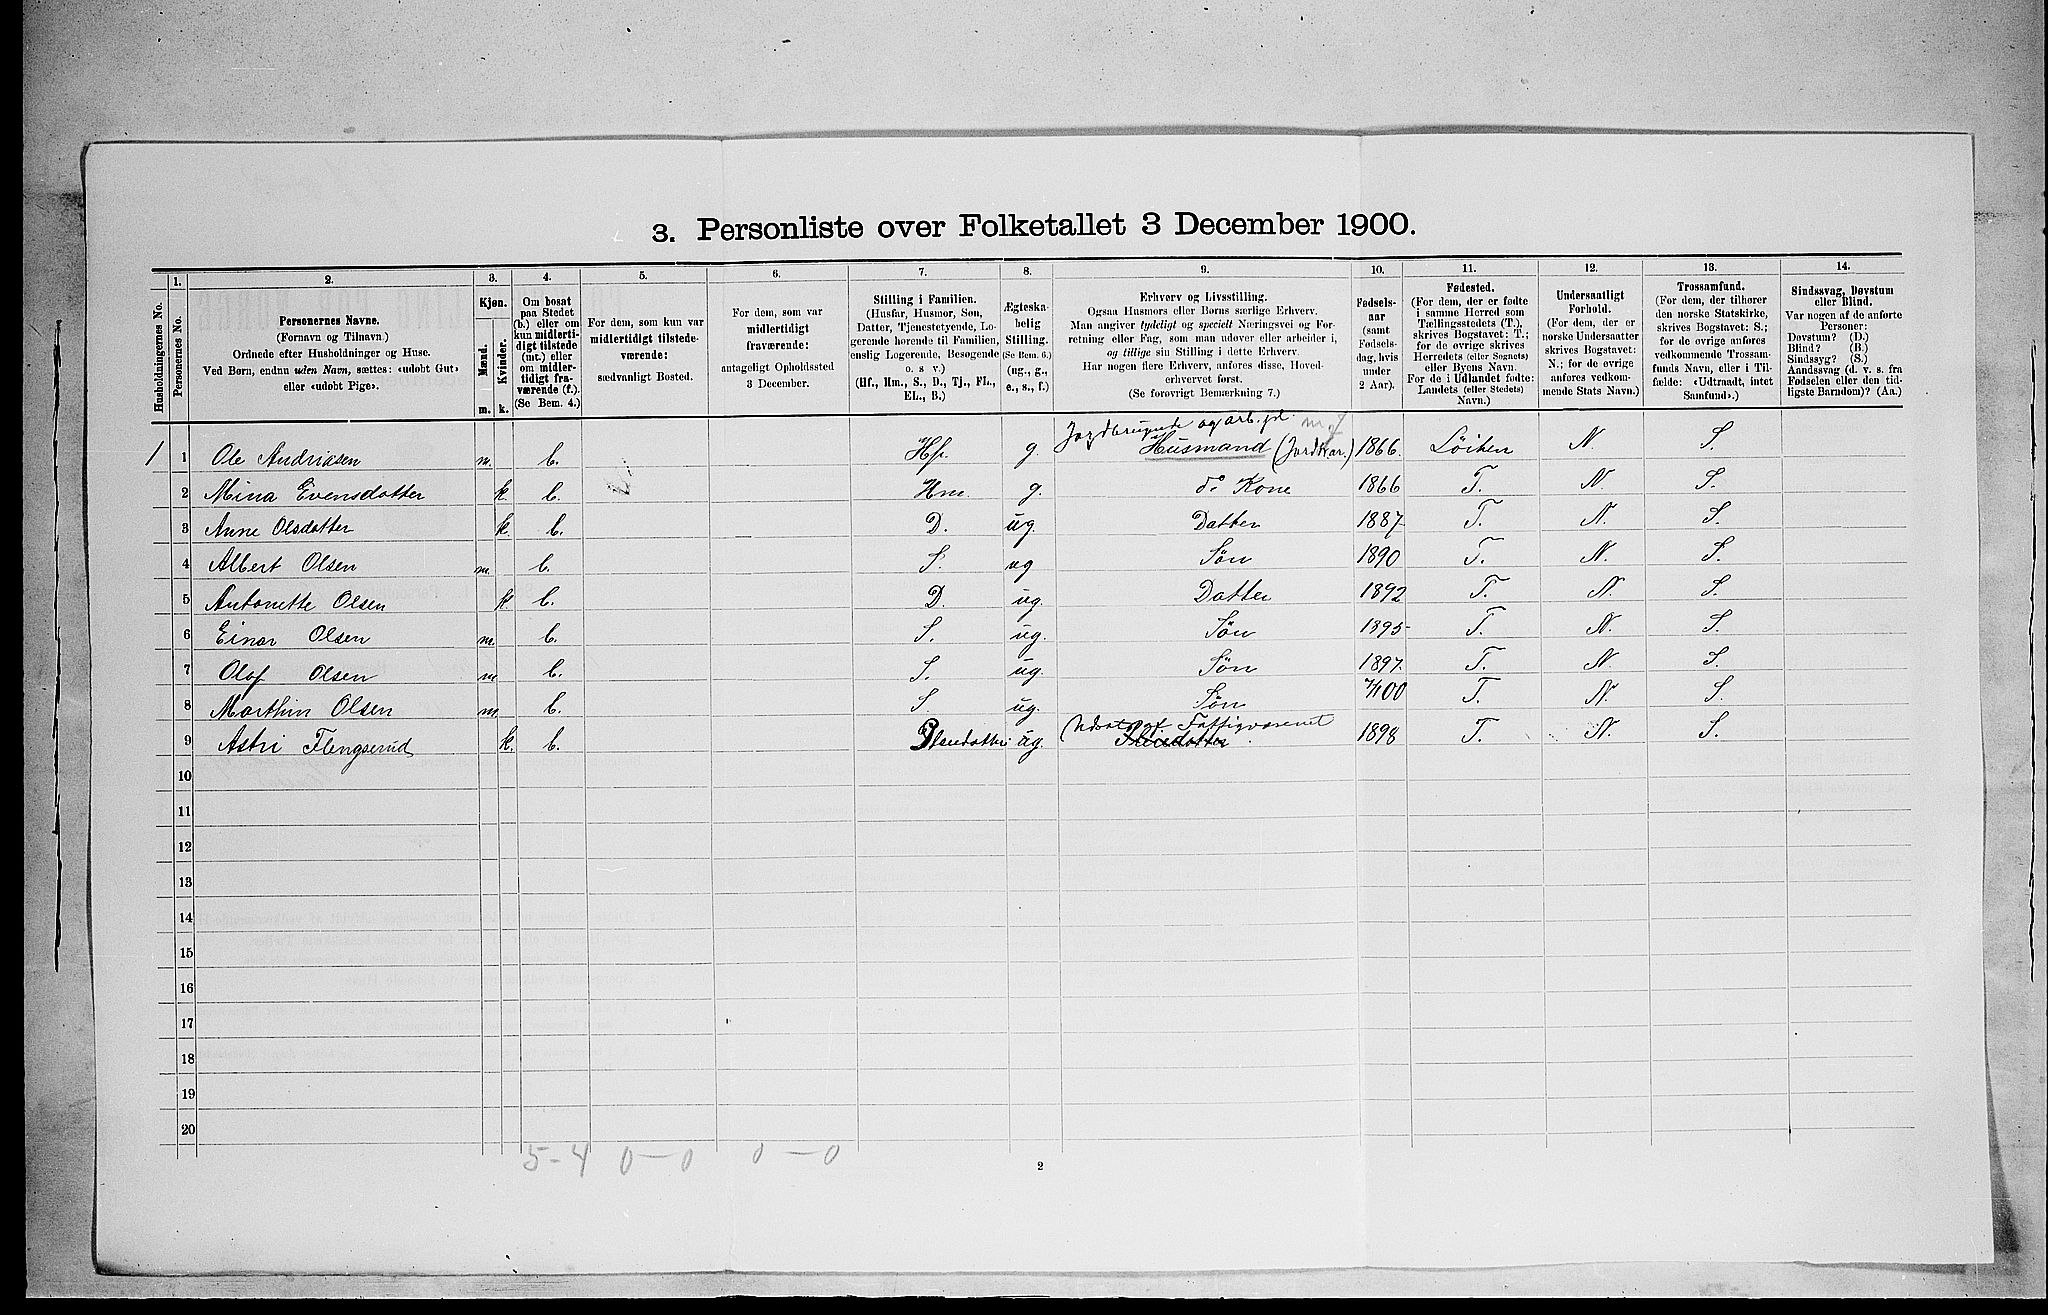 3. Personliste over Folketallet 3 December 1900.
Husholdningernes No.
1.
Personernes No.
2.
Personernes Navne.
(Fornavn og Tilnavn.)
Ordnede efter Husholdninger og Huse.
Ved Børn, endnu uden Navn, sættes: «udøbt Gut»
eller «udøbt Pige».
3.
Kjøn.
Mænd.
Kvinder.
m.
k.
4.
Om bosat
paa Stedet
(b.) eller om
kun midlerti-
digt tilstede
(mt.) eller
om midler-
tidigt fra-
værende (f.).
(Se Bem. 4.)
5.
For dem, som kun var
midlertidigt tilstede-
værende:
sædvanligt Bosted.
6.
For dem, som var
midlertidigt
fraværende:
antageligt Opholdssted
3 December.
7.
Stilling i Familien.
(Husfar, Husmor, Søn,
Datter, Tjenestetyende, Lo-
gerende hørende til Familien,
enslig Logerende, Besøgende
o. s. v.)
(Hf., Hm., S., D., Tj., FL.,
EL., B.)
8.
Ægteska-
belig
Stilling.
(Se Bem. 6.)
(ug., g.,
e., s., f.)
9.
Erhverv og Livsstilling.
Ogsaa Husmors eller Børns særlige Erhverv.
Man angiver tydeligt og specielt Næringsvei og For-
retning eller Fag, som man udøver eller arbeider i,
og tillige sin Stilling i dette Erhverv.
Har nogen flere Erhverv, anføres disse, Hoved-
erhvervet først.
(Se forøvrigt Bemærkning 7.)
10.
Fødsels-
aar
(samt
Fødsels-
dag, hvis
under
2 Aar).
11.
Fødested.
(For dem, der er fødte
i samme Herred som
Tællingsstedets (T.),
skrives Bogstavet: T.;
for de øvrige skrives
Herredets (eller Sognets)
eller Byens Navn.
For de i Udlandet fødte:
Landets (eller Stedets)
Navn.)
12.
Undersaatligt
Forhold.
(For dem, der er
norske Undersaatter
skrives Bogstavet:
N.; for de øvrige
anføres vedkom-
mende Stats Navn.)
13.
Trossamfund.
(For dem, der tilhører
den norske Statskirke,
skrives Bogstavet: S.;
for de øvrige anføres
vedkommende Trossam-
funds Navn, eller i Til-
fælde: «Udtraadt, intet
Samfund».)
14.
Sindssvag, Døvstum
eller Blind.
Var nogen af de anførte
Personer:
Døvstum? (D.)
Blind? (B.)
Sindssyg? (S.)
Aandssvag (d. v. s. fra
Fødselen eller den tid-
ligste Barndom)? (Aa.)
Jordbrugende og arb. pd.
1 1 Ole Andriasen m. b. Hf. g. Husmand (Jordbr.) 1866. Löiten N S.
2 Mina Evensdatter k b. Hm. g. do Kone 1866 T. N. S.
3 Anne Olsdatter k. b. D. ug. Datter 1887 T. N. S.
4 Albert Olsen m. b. S. ug Søn 1890 T. N. S.
5 Antonette Olsen k b. D. ug. Datter 1892 T. N. S.
6 Einar Olsen m. b. S. ug. Søn 1895 T. N. S.
7 Olaf Olsen m b. S. ug. Søn 1897. T. N. S.
8 Marthin Olsen m. b. S ug. Søn 00 T. N. S.
Udsat af Fattigvæsenet
9 Astri Flengserud k. b. Pleiedatter ug. Pleiedatter 1898 T. N. S.
10
11
12
13
14
15
16
17
18
19
20
5-4 0-0 0-0
2